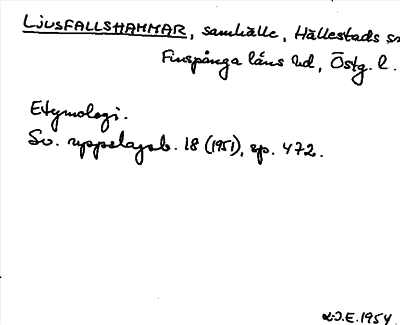 LJUSFALLSHAMMAR, samhälle, Hällestads sn
Finspånga läns hd, Östg. l.
Etymologi.
Sv. uppslagsb. 18 (1951), sp. 472.
L.J.E. 1954.